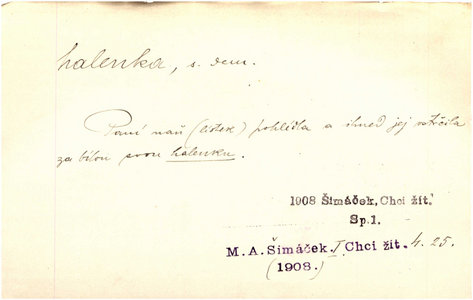 halenka, s. dem.
Paní naň (lístek) pohlédla a ihned jej vstrčila
za bílou svou halenku.
1908 Šimáček, Chci žít.
Sp.1.
M.A. Šimáček. I Chci žít. 4. 25.
(1908.)